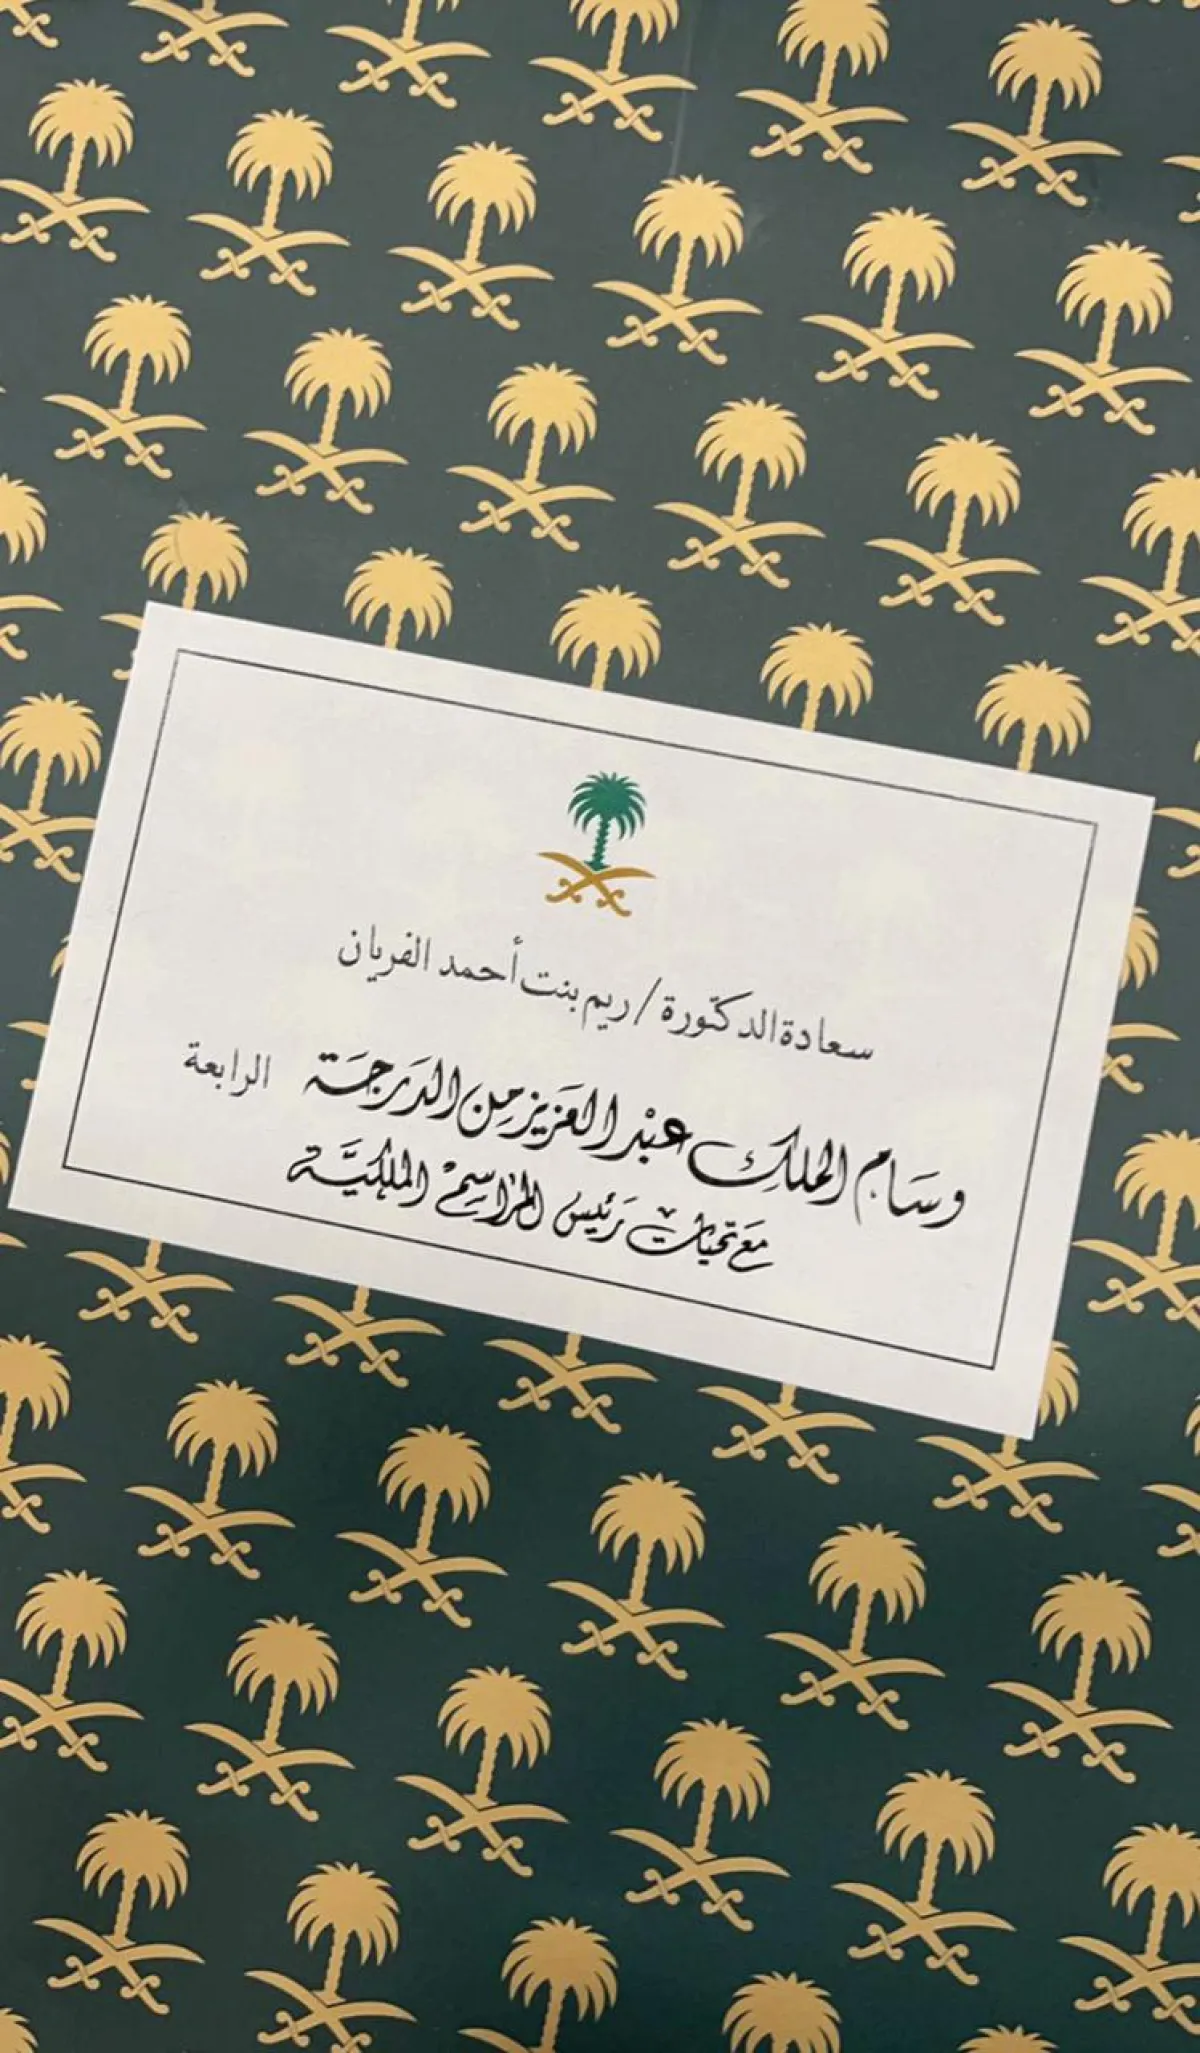 سعادة الدكتورة / ريم بنت أحمد الفريان
وسَام الملك عبْد العَزيز مِن الدَرجَة الرابعة
مَع تحيات رَئيس المَراسِمْ الملكيَّة